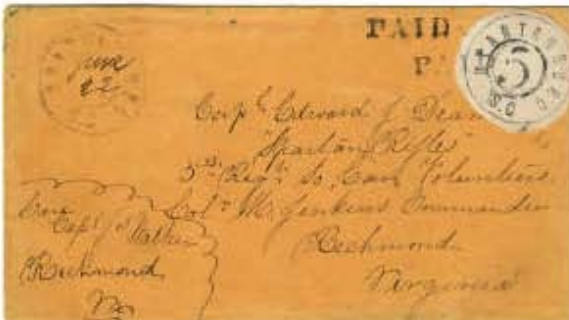 PAID
SPARTANBURG
5
S.C
June
22
Corp l Edward J Dean
"Spartan Rifles"
5th Reg t So, Car, Volunteers
Col o M. Jenkins Commander
Richmond
Virginia
Care
Capt J. Walker
Richmond,
Va